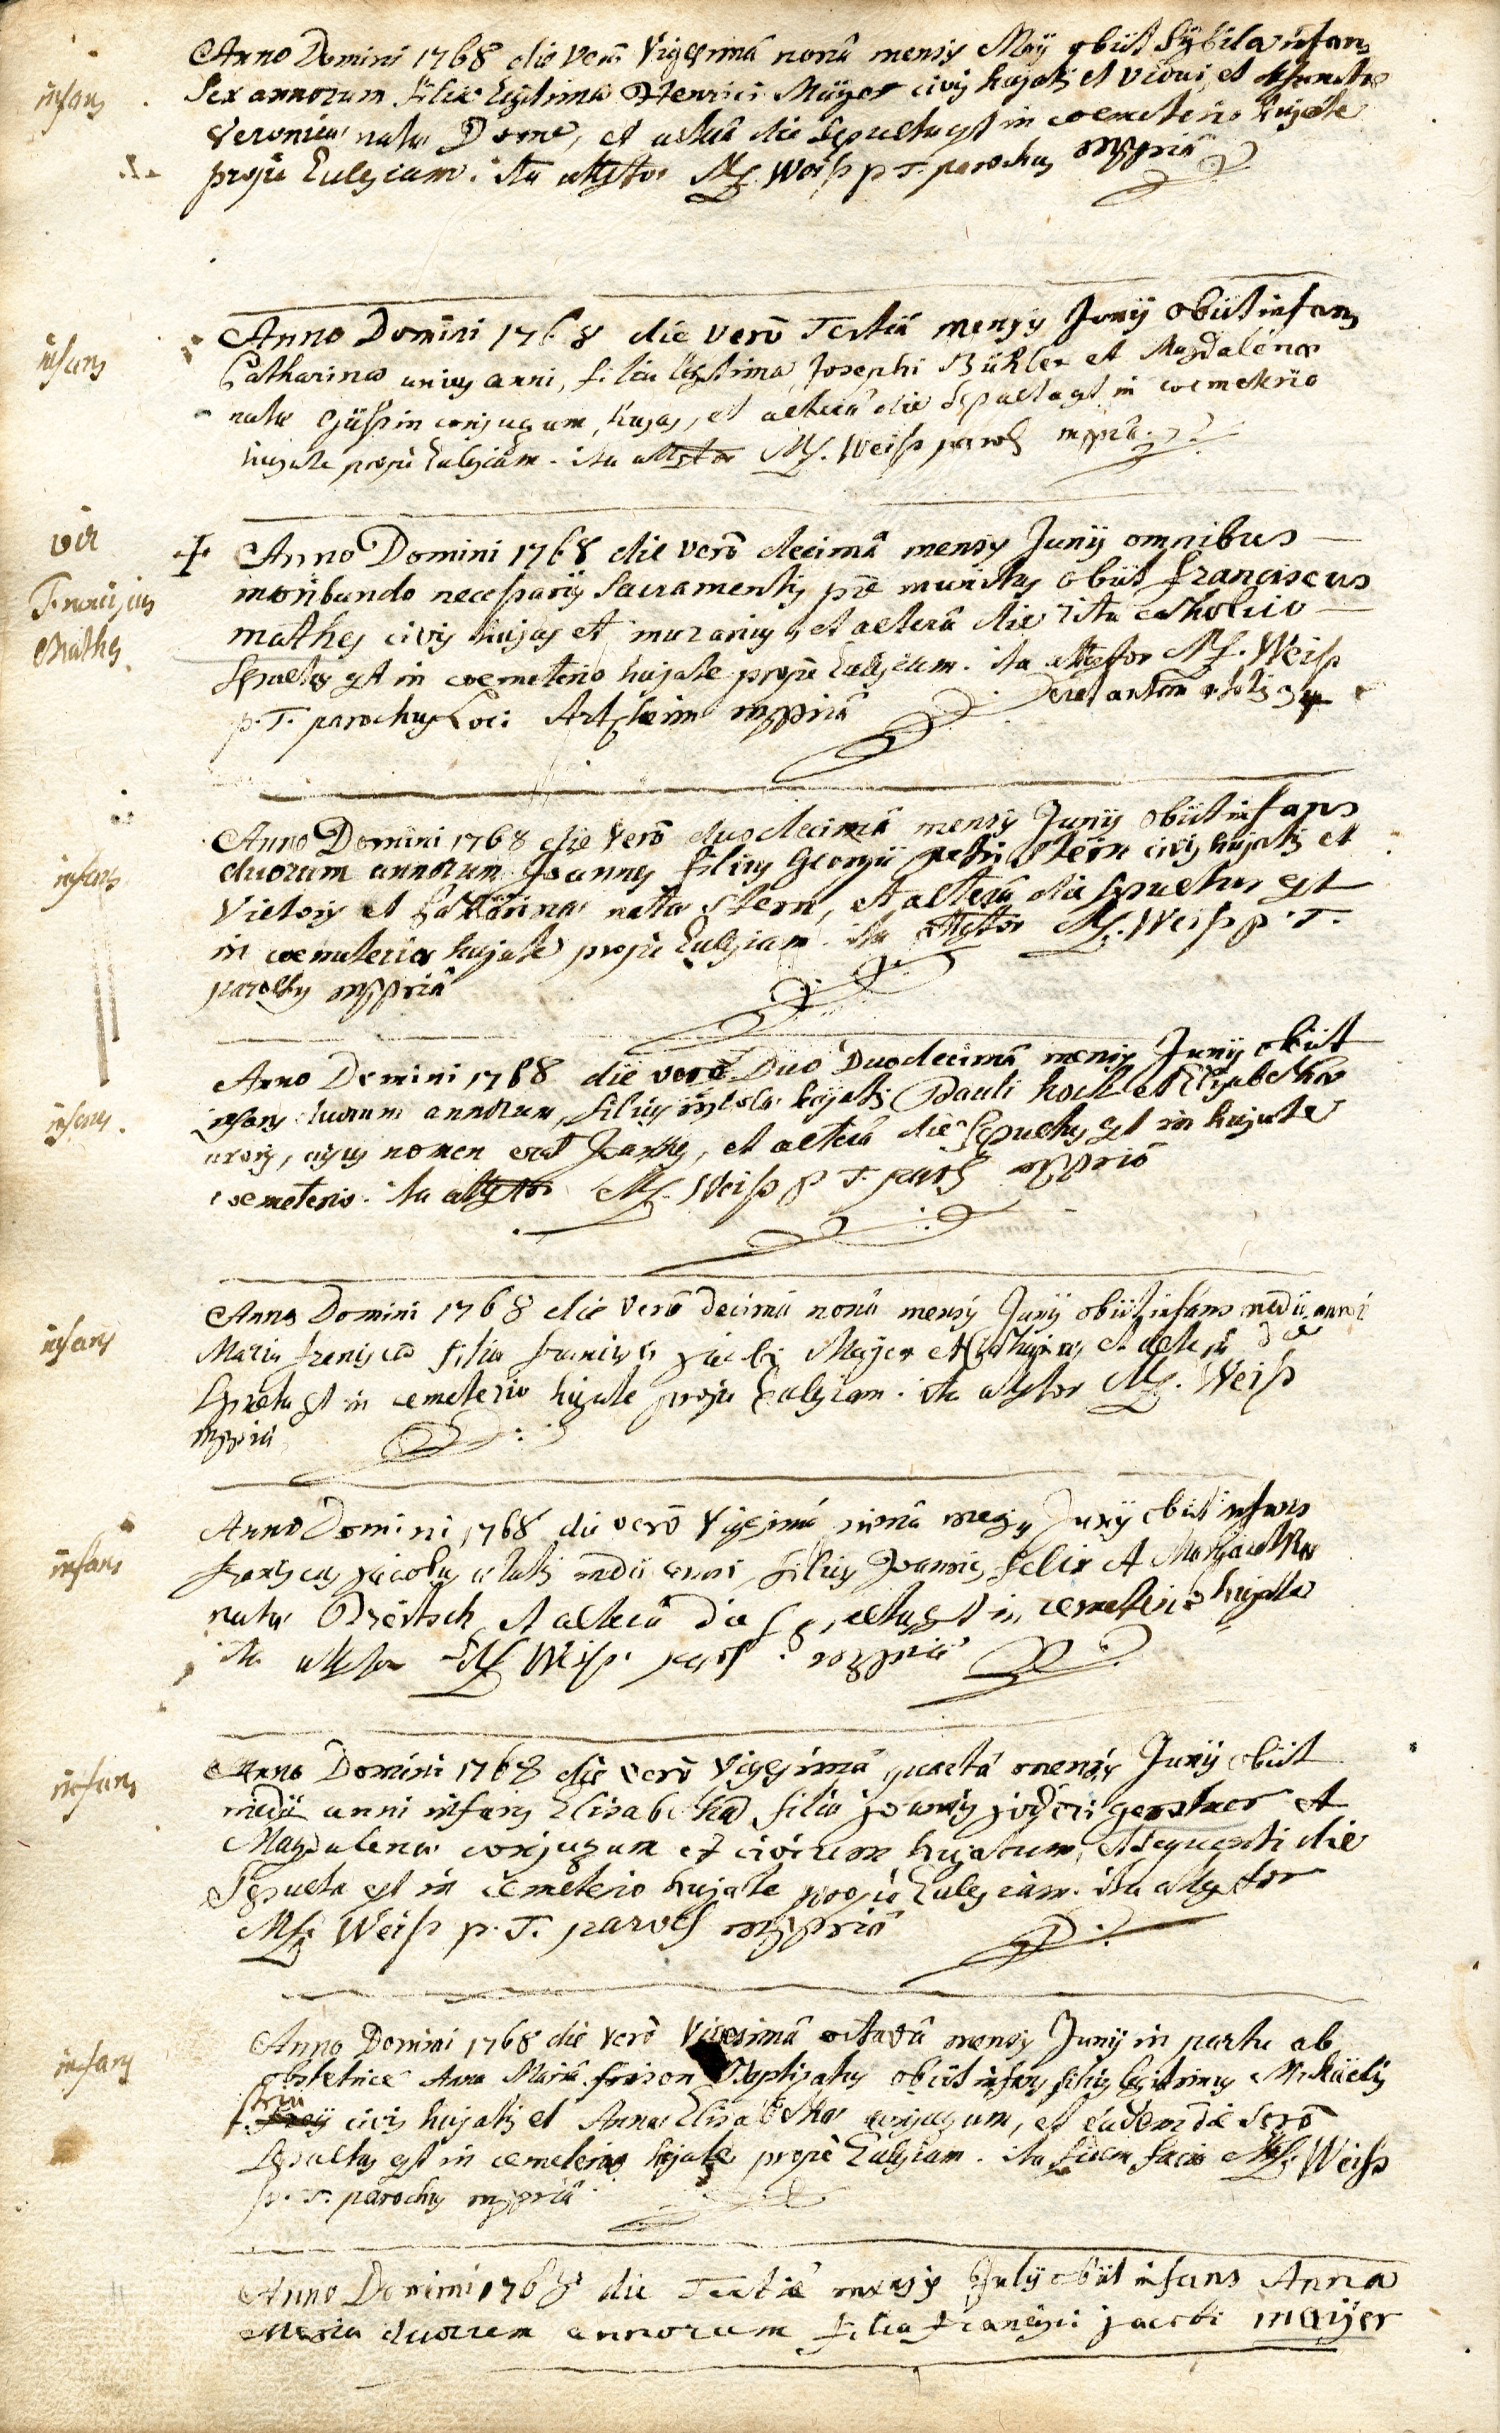 infans
Anno Domini 1768 die verò vigesimâ nonâ mensis Maij obiit Sybila infans
sex annorum filia legitima Henrici Mayer civis hujatis et vidui, et defunctæ
Veronicæ natæ Dome, et alterâ die sepulta est in coemeterio hujate
propè Eulesiam. ita attestor M. Weiss p. T. parochus mppriâ
infans
Anno Domini 1768 die verò Tertiâ mensis Junij obiit infans
Catharina unius anni, filia legitima Josephi Bühler et Magdalenæ
natæ conjugum hujas, et alterâ die sepulta est in coemeterio
hujate propè Eulesiam. ita attestor M. Weiss paroch mppriâ
vir
Franciscus
Mathes
Anno Domini 1768 die verò decimâ mensis Junij omnibus
moribundo necessarijs Sacramentis præ munitus obiit franciscus
mathes civis hujas et murarius, et alterâ die ritu catholico
sepultus est in coemeterio hujate propè Eulesiam. ita attestor M. Weiss
p. T. parochus Loci Artzheim mppriâ
erat autem ætatis
infans
Anno Domini 1768 die verò duodecimâ mensis Junij obiit infans
duorum annorum Joannes filius Georgii petri Stern civis hujatis et
et Catharinæ natæ Stern, et alterâ die sepultus est
in coemeterio hujate propè Eulesiam. ita attestor M. Weiss p. T.
parochus mppriâ
infans
Anno Domini 1768 die verò Duo Duodecimâ mensis Junij obiit
infans duorum annorum, filius incolæ hujatis Pauli hoch et Elisabethæ
uxoris, cujus nomen erat Joannes, et alterâ die sepultus est in hujate
coemeterio. ita attestor M. Weiss p T. paroch mppriâ
infans
Anno Domini 1768 die verò decimâ nonâ mensis Junij obiit infans medii anni
Maria francisca filia francisci jacobi Mayer et hujus, et alterâ die
sepulta est in cemeterio hujate propè Eulesiam. ita attestor M. Weiss
mppriâ
infans
Anno Domini 1768 die verò vigesimâ mensis Junij obiit infans
franciscus jacobus ætatis medii anni, filius Joannis felix et Margarethæ
natæ Bertsch, et alterâ die sepultus est in cemeterio hujate
ita attestor M Weiss paroch mppriâ
infans
Anno Domini 1768 die verò vigesimâ quartâ mensis Junij obiit
medii anni infans Elisabetha filia joannis jodoci gerstner et
Magdalenæ conjugum et civium hujatum, et sequenti die
Sepulta est in cemeterio hujate propè Eulesiam. ita attestor
M. Weiss p. T. paroch mppriâ
infans
Anno Domini 1768 die verò vicesimâ octavâ mensis Junij in partu ab
obstetrice Anna Maria frison Baptisatus obiit infans filius legitimus Michaelis
civis hujatis et Annæ Elisabethæ conjugum, et eadem die serò
sepultus est in cemeterio hujate propè Eulesiam. ita fidem facio M. Weiss
p. T. parochus mppriâ
Anno Domini 1768 die Tertiâ mensis Julij obiit infans Anna
Maria duorum annorum filia francisci jacobi mayer